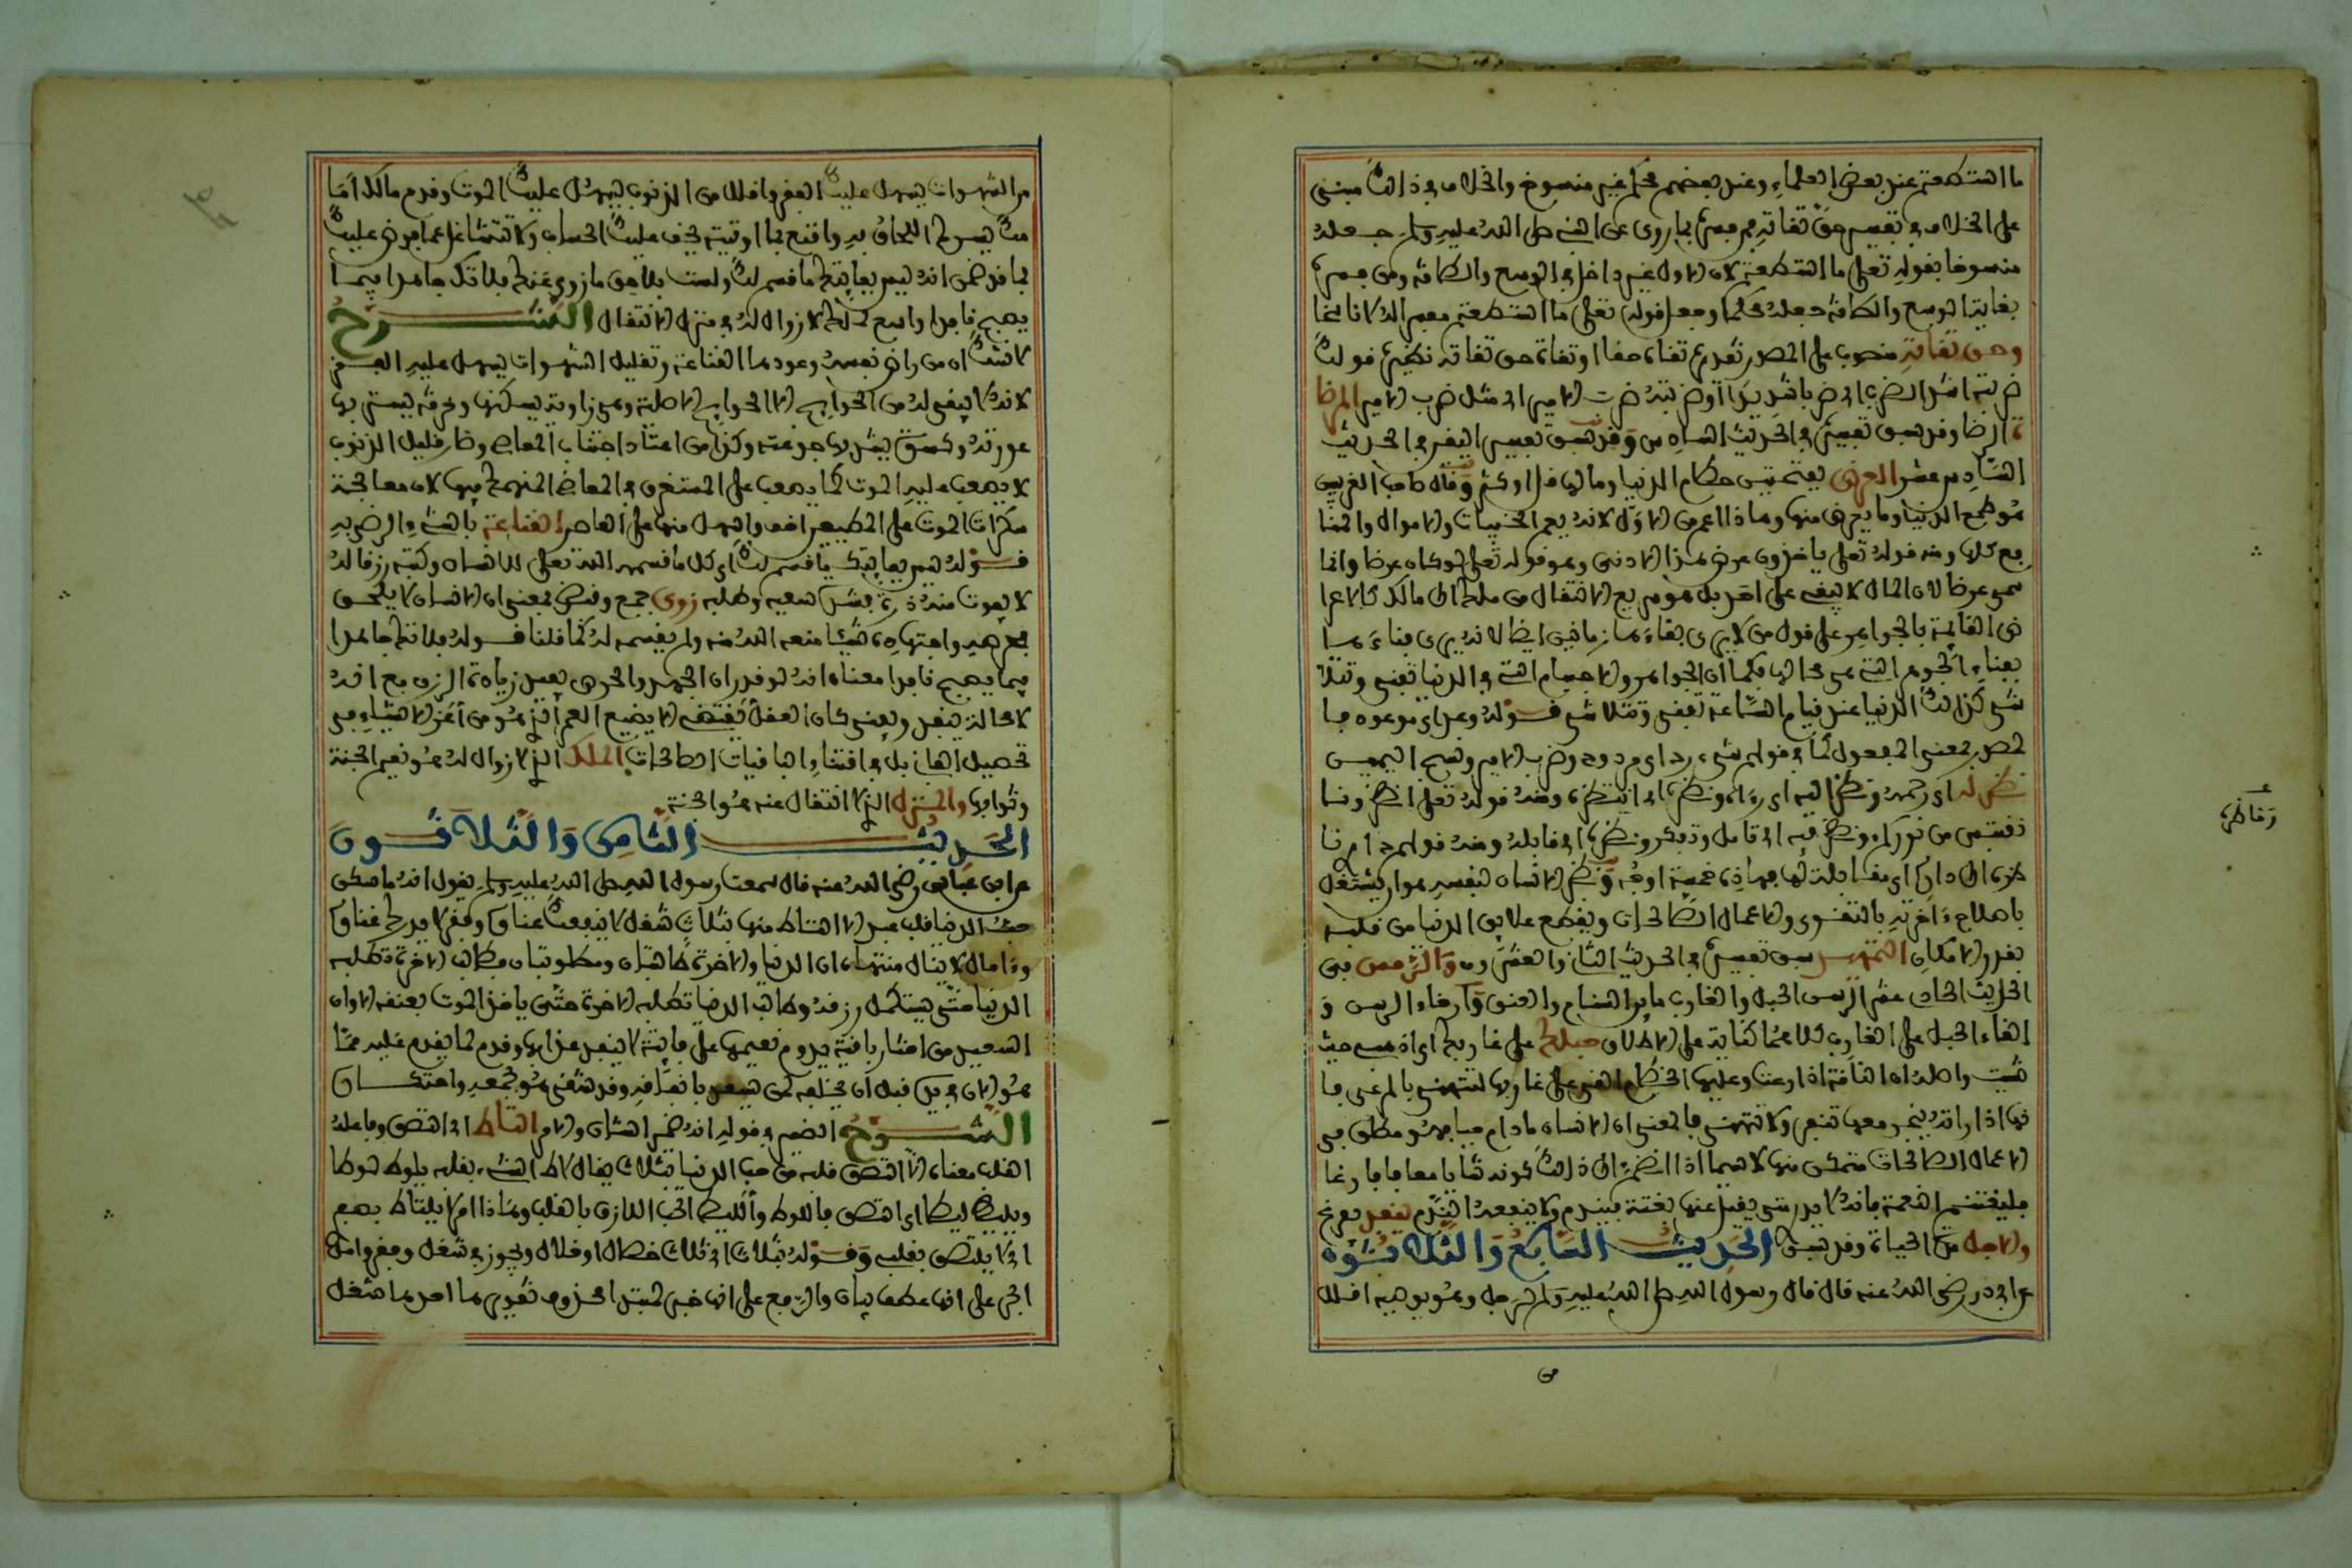 ما استطعتم عند بعض العلماء وعند بعضهم محكم غير منسوخ والخلاف في ذلك مبني
على الخلاف في تفسير حق تقاته فمن فسره بما روي عن النبي صلى الله عليه وسلم جعله
منسوخا بقوله تعلى ما استطعتم لان الاول غير داخل في الوسع والطاقة ومن فسره
بغاية الوسع والطاقة جعله محكما وجعل قوله تعلى ما استطعتم مفسرا له لا ناسخا
وحق تقاته منصوب على المصدر تقديره تقاة حقا او تقاة حق تقاته نظيره قولك
ضربته اشد الضرب اي ضربا شديدا او ضربته ضرب الامير اي مثل ضرب الامير المرضا
ة الرضا وقد سبق تفسيره في الحديث السادس وقد سبق تفسير اليقين في الحديث
السادس عشر العرض بفتحتين حطام الدنيا ومالها قل او كثر وقال صاحب الغريبين
هو طمع الدنيا وما يعرض منها وهذا اعم من الاول لانه يعم الحسيات والاموال والمنا
فع كلها ومنه قوله تعلى ياخذون عرض هذا الادنى وهو قوله تعلى لو كان عرضا وانما
سمي عرضا لان المال لا يبقى على احد بل هو سريع الانتقال من ملك الى مالك كالاعرا
ض القائمة بالجواهر على قول من لا يرى بقاءها زمانين ايضا لانه يرى فناءها
بفناء الجوهر التي هي محالها فكما ان الجواهر والاجسام التي في الدنيا تفنى وتتلا
شى كذلك الدنيا عند قيام الساعة تفنى وتتلاشى قوله وعد اي موعود فا
لمصدر بمعنى المفعول كما في قولهم شيء رد اي مردود وضرب الامير ونسج اليمين
نظر له اي رحمه ونظر اليه اي رءاه ونظره اي انتظره ومنه قوله تعلى انظرونا
نقتبس من نوركم ونظر فيه اي تامل وتفكر ونظره اي قابله ومنه قولهم دار نا
ظرة الى دار اي مقابلة لها فهاذه خمسة اوجه ونظر الانسان لنفسه هو ان يشتغل
باصلاح ءاخرته بالتقوى والاعمال الصالحات ويقطع علايق الدنيا من قلبه
بقدر الامكان التمهيد سبق تفسيره في الحديث الثاني والعشرين والرمس في
الحديث الحادي عشر الرسن الحبل والغارب ما بين السنام والعنق وارخاء الرسن و
القاء الحبل على الغارب كلاهما كناية على الاطلاق حبلك على غاربك اي اذهبي حيث
شيت واصله ان الناقة اذا رعت وعليها الخطام القي على غاربها لتتهنى بالمرعى فا
نها اذا راته ينجر معها تنفر ولا تتهنى فالمعنى ان الانسان ما دام حيا فهو مطلق في
الاعمال الصالحات متمكن منها لاسيما اذا انضم الى ذلك كونه شابا معافا فارغا
فليغتنم النعمة فانه لا يدري متى يقبل عنها بغتة فيندم ولا ينفعه الندم
والاجل مدة الحياة وقد سبق الحديث السابع والثلاثون
عن ابي ذر رضي الله عنه قال قال رسول الله صلى الله عليه وسلم لرجل وهو يوصيه اقلل
وناظره
من الشهوات يسهل عليك الفقر واقلل من الذنوب يسهل عليك الموت وقدم مالك اما
مك يسرك اللحاق به واقنع بما اوتيته يخف عليك الحساب ولا تتشاغل عما فرض عليك
بما قد ضمن انه ليس بفايتك ما قسم لك ولست بلاحق ما زوي عنك فلا تك جاهدا فيما
يصبح نافدا واسع لملك لا زوال له في منزل لا انتقال الشرح
لا شك ان من راض نفسه وعودها القناعة وتقليل الشهوات يسهل عليه الفقر
لانه لا يبقى له من الحوايج الا الحوايج الاصلية وهي زاوية يسكنها وخرقة يستر بها
عورته وكسرة يسد بها جوعته وكذا من اعتاد اجتناب المعاصي وصار قليل الذنوب
لا يصعب عليه الموت كما يصعب على المستغرق في المعاصي المنهمك فيها لان معالجة
سكرات الموت على المطيع اخف واسهل منها على العاصي القناعة بالشيء الرضى به
قوله ليس بفايتك ما قسم لك اي كل ما قسمه الله تعلى للانسان وكتبه رزقا له
لا يفوت منه ذرة بترك سعيه وطلبه زوى جمع وقبض بمعنى ان الانسان لا يلحق
بجهده واجتهاده شيئا منعه الله منه ولم يقسمه له كما قلنا قوله فلا تك جاهدا
فيما يصبح نافدا معناه انه لو قدر ان الجهد والحرص يفيد زيادة الرزق مع انه
لا محالة ينفد ويفنى كان العقل يقتضي الا يضيع العمر الذي هو من اعز الاشياء في
تحصيل الفاني بل في اقتناء الباقيات الصالحات الملك الذي لا زوال له هو نعيم الجنة
وثوابها والمنزل الذي لا انتقال عنه هو الجنة
الحديث الثامن والثلاثون
عن ابن عباس رضي الله عنه قال سمعت رسول الله صلى الله عليه وسلم يقول انه ما سكن
حب الدنيا قلب عبد الا التاط منها بثلاث شغل لا ينفك عناه وفقر لا يدرك غناه
وءامال لا ينال منتهاه ان الدنيا والاخرة طالبتان ومطلوبتان فطالب الاخرة تطلبه
الدنيا حتى يستكمل رزقه وطالب الدنيا تطلبه الاخرة حتى ياخذ الموت بعنقه الا وان
السعيد من اختار باقية يدوم نعيمها على فانية لا ينفد عذابها وقدم لما يقدم عليه مما
هو الان في يده قبل ان يخلفه لمن يسعد بانفاقه وقد شقي هو بجمعه واحتكاره
الشرح الضمير في قوله انه ضمير الشان والامر التاط اي التصق وفاعله
القلب معناه الا التصق قلبه من حب الدنيا بثلاث يقال لاط الشيء بقلبه يلوط لوطا
ويليط ليطا اي التصق فاللوط والليط الحب اللازق بالقلب وهاذا امر لا يلتاط بصفر
اي لا يلتصق بقلبه وقوله بثلاث اي ثلاث خصال او خلال ويجوز في شغل وفقر وامل
الجر على انها عطف بيان والرفع على انها خبر لمبتدا محذوف تقديره احدها شغل